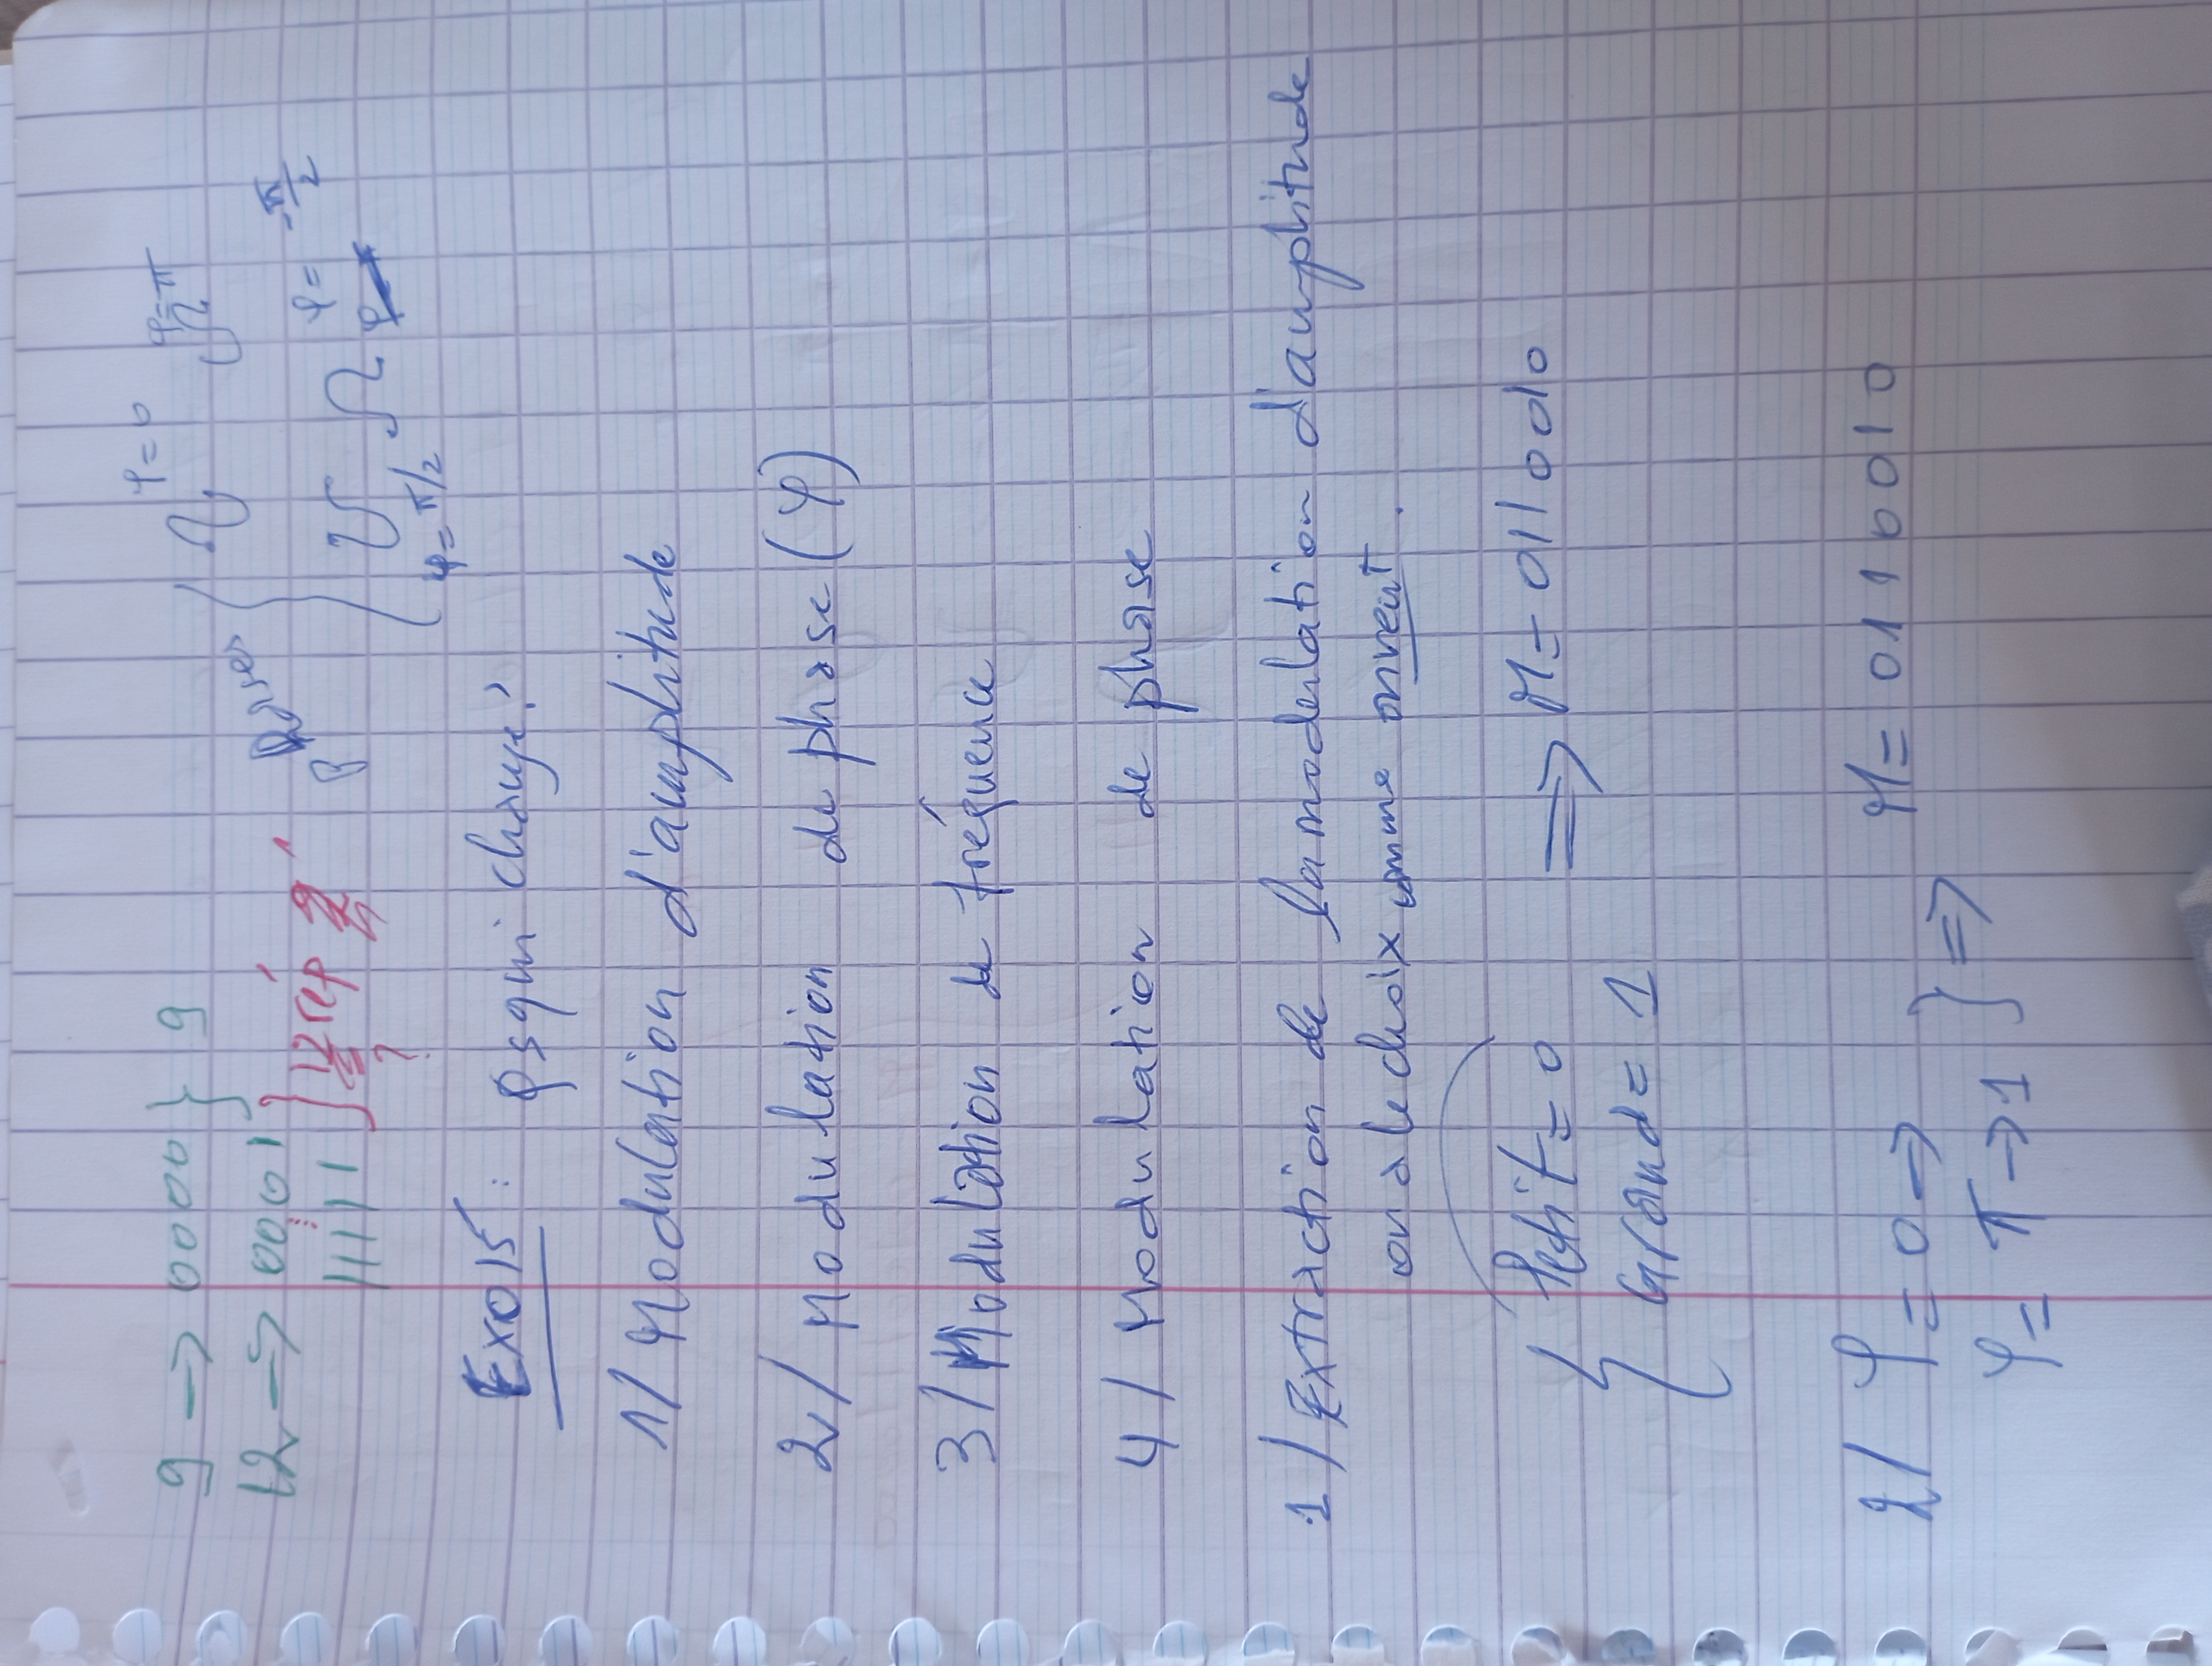 9 → 0000 } 9
12 → 0001
11111 } rép
?
Phases
φ=0
φ=π
φ=π/2
φ= -π/2
Exo 15 : Psqui change?
1/ Modulation d'amplitude
2/ Modulation de phase (φ)
3/ Modulation de fréquence
4/ Modulation de phase
1/ Extraction de la modulation d'amplitude
on a le choix
Petit = 0
Grand = 1
⇒ M= 0110010
2/ φ = 0 →
φ = π → 1 } ⇒
M= 0110010